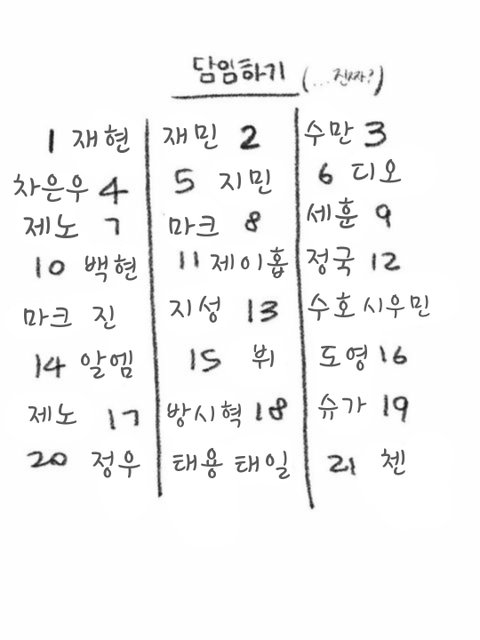 담임하기 (...진짜?)
1 재현 재민 2 수만 3
차은우 4 5 지민 6 디오
제노 7 마크 8 세훈 9
10 백현 11 제이홉 정국 12
마크 진 지성 13 수호 시우민
14 알엠 15 뷔 도영 16
제노 17 방시혁 18 슈가 19
20 정우 태용 태일 21 첸